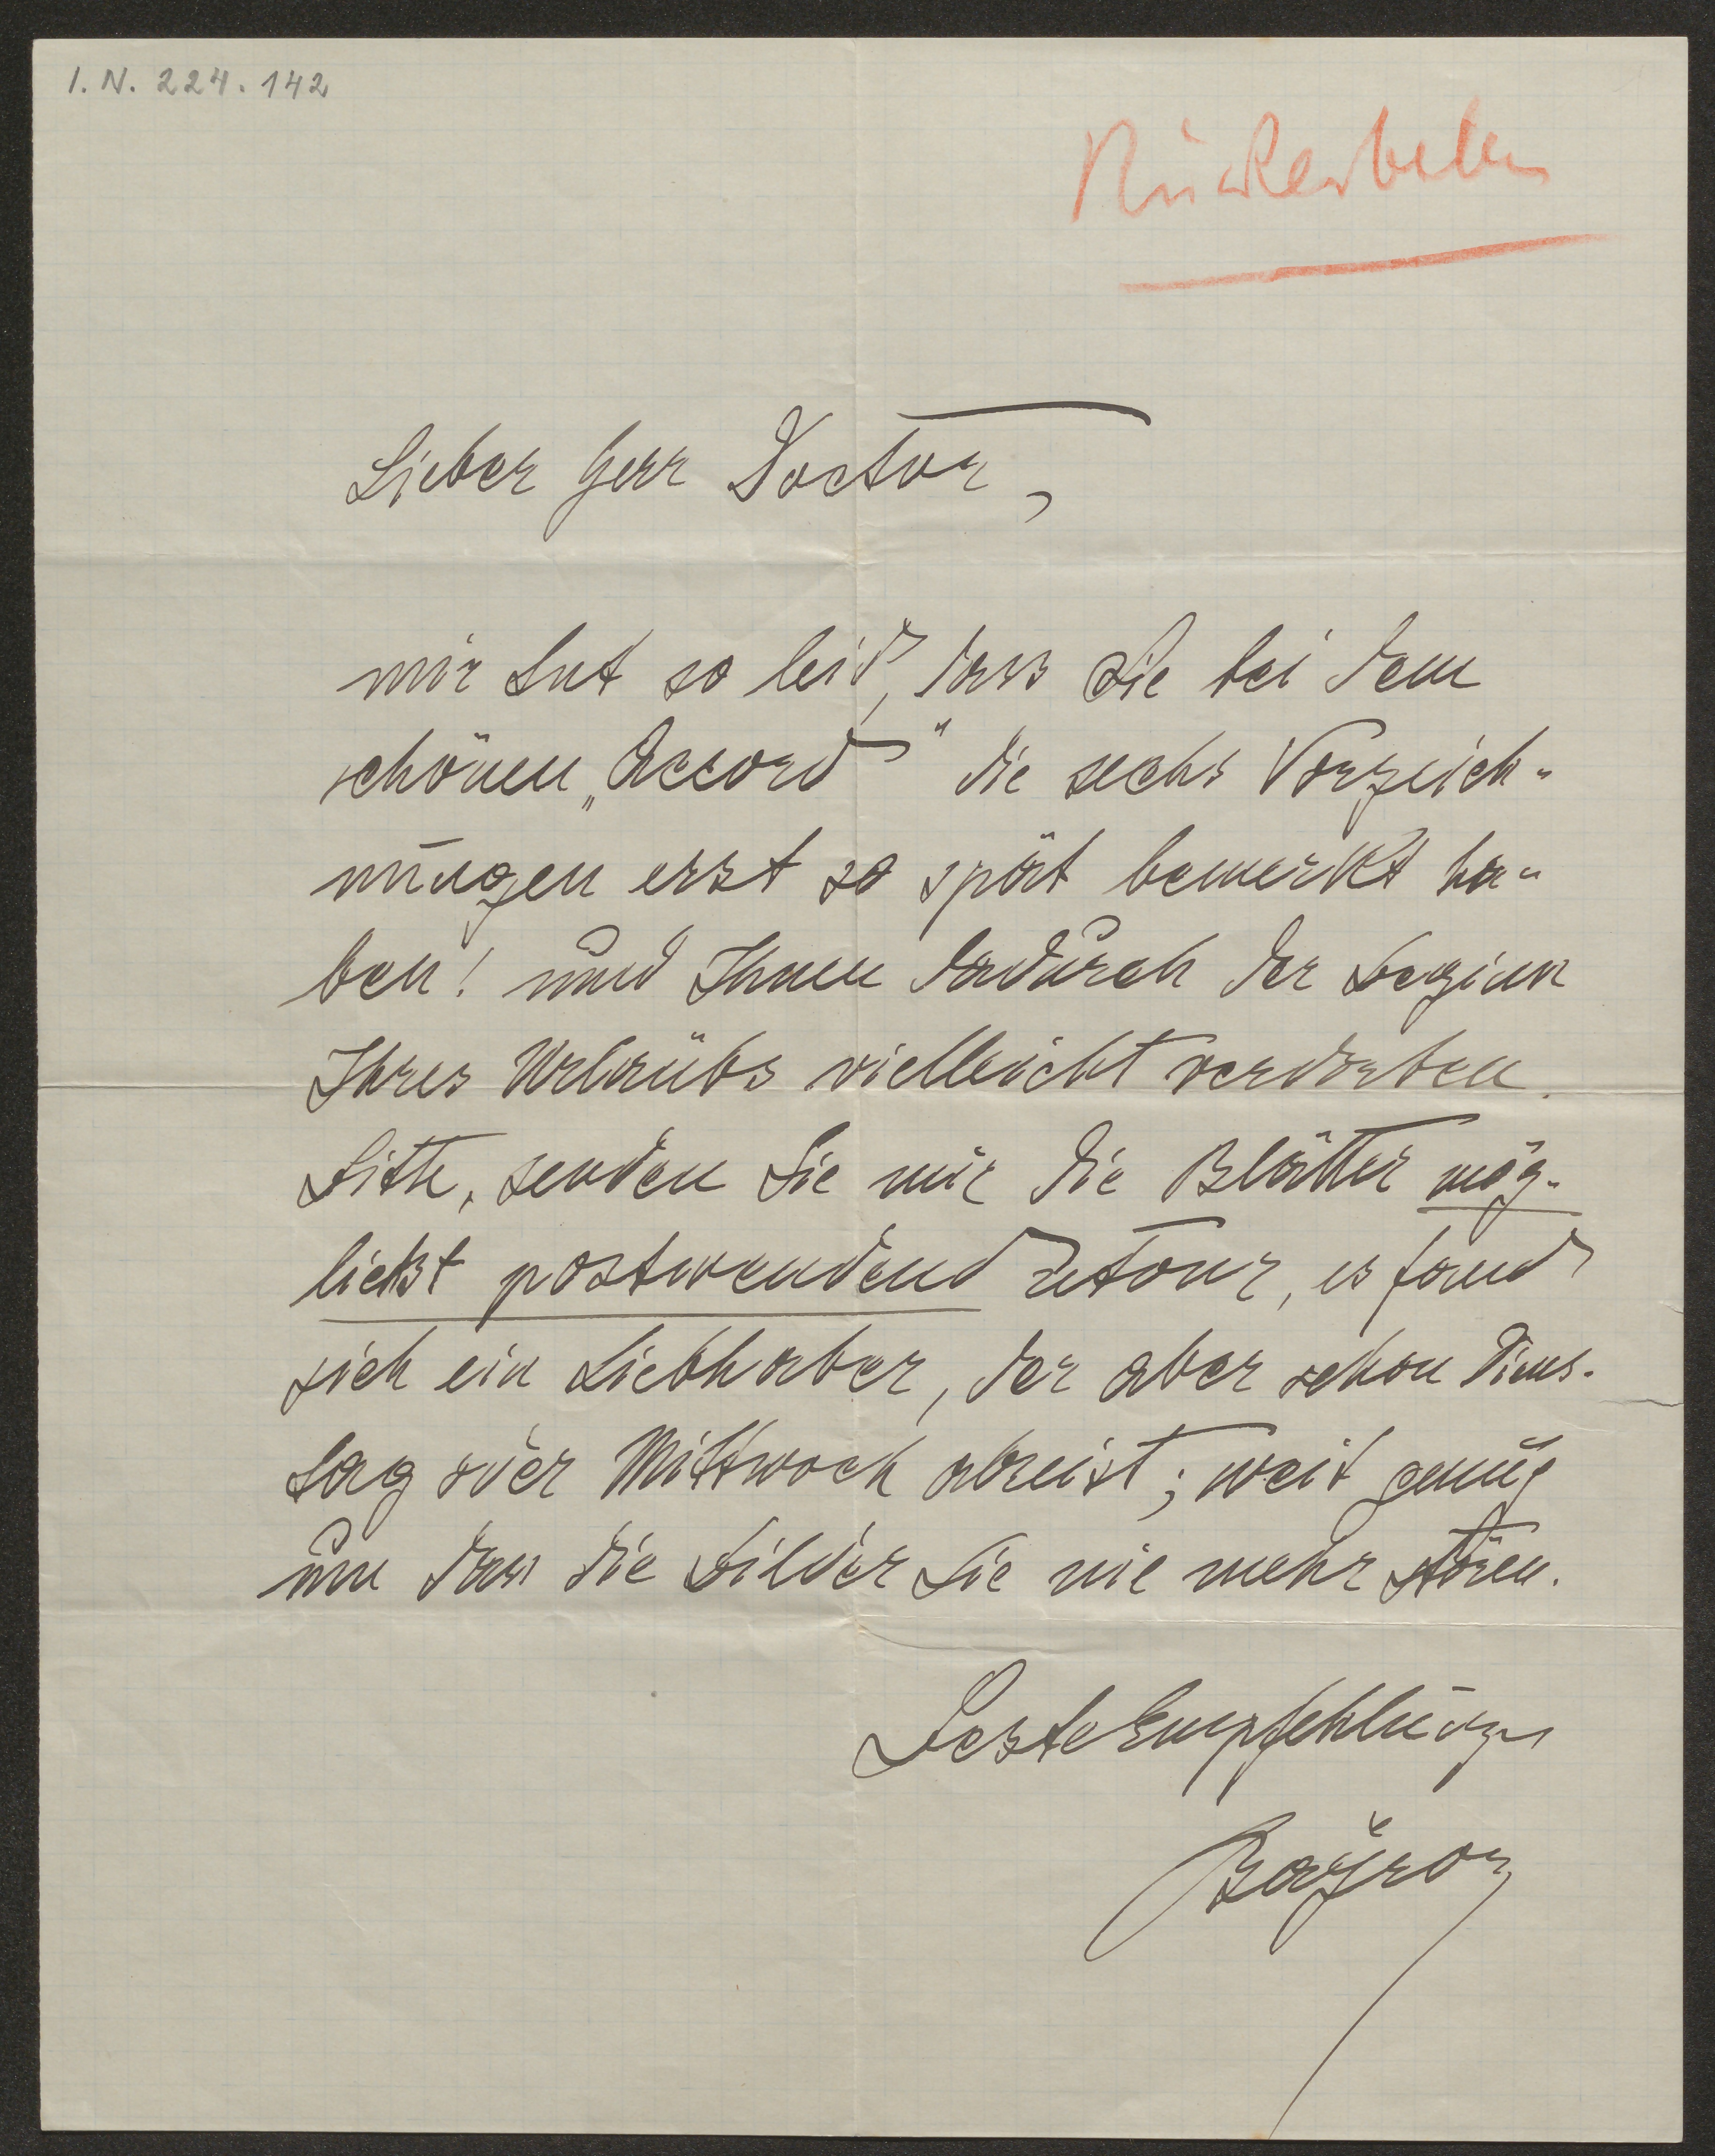 I. N. 224.142
Rückerbeten
Lieber Herr Doctor,
mir tut so leid, dass Sie bei dem
schönen „Accord" die sechs Vorzeich-
nungen erst so spät bemerkt ha-
ben! und Ihnen dadurch der Beginn
Ihres Urlaubs vielleicht verdorben.
Bitte, senden Sie mir die Blätter mög-
lichst postwendend retour, es fand
sich ein Liebhaber, der aber schon Diens-
tag oder Mittwoch abreist; weit genug
um dass die Bilder Sie nie mehr stören.
Beste Empfehlungen
Bayros